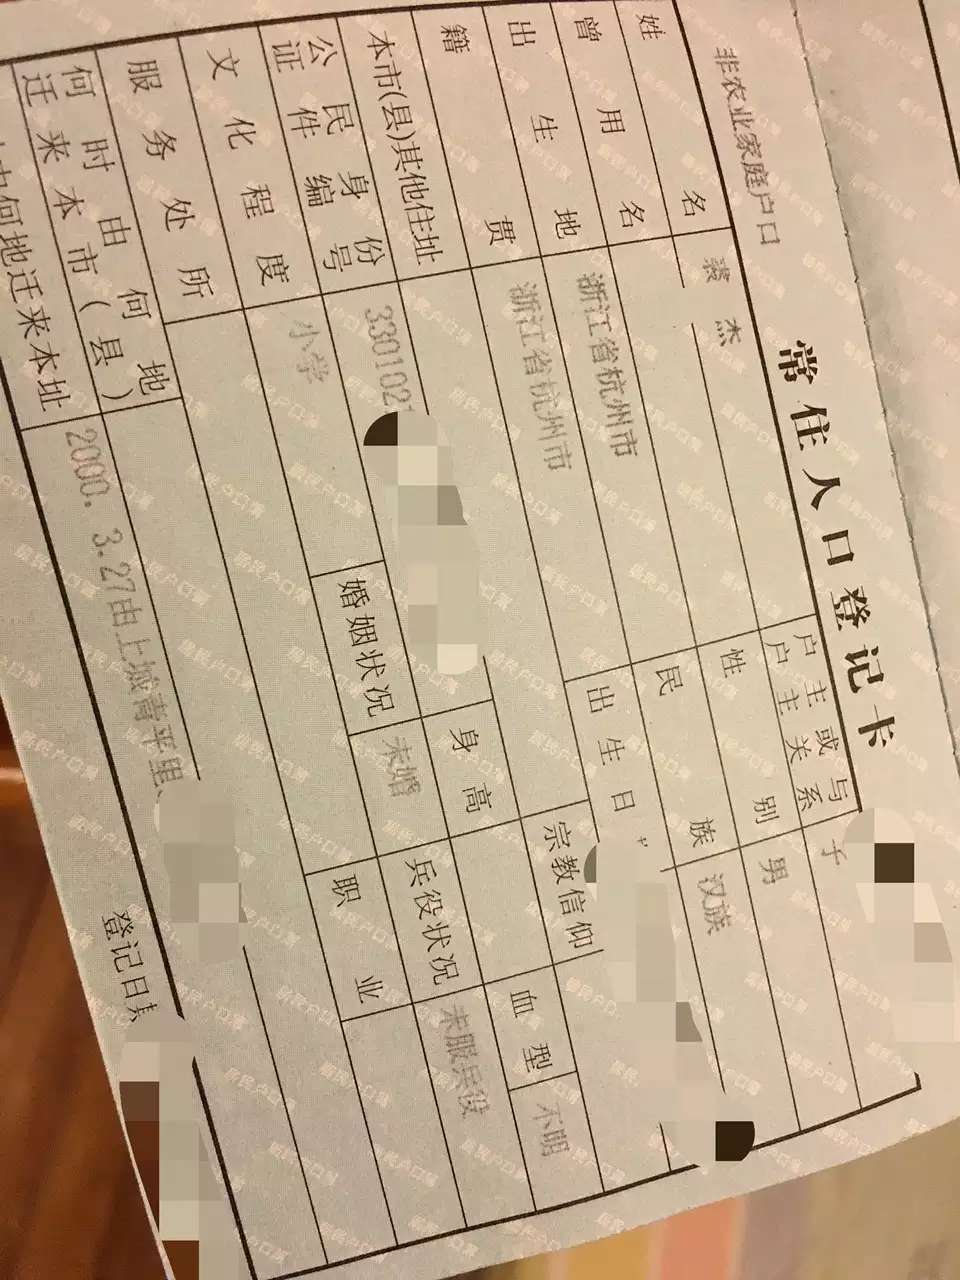 非农业家庭户口
常住人口登记卡
姓名 裘 杰 户主或与户主关系 子
曾用名 性别 男
出生地 浙江省杭州市 民族 汉族
籍贯 浙江省杭州市 出生日
本市(县)其他住址 宗教信仰
公民身份证件编号 3301021 身高 血型 不明
文化程度 小学 婚姻状况 未婚 兵役状况 未服兵役
服务处所 职业
何时由何地迁来本市(县)
何地迁来本址 2000. 3.27由上城青平里
登记日